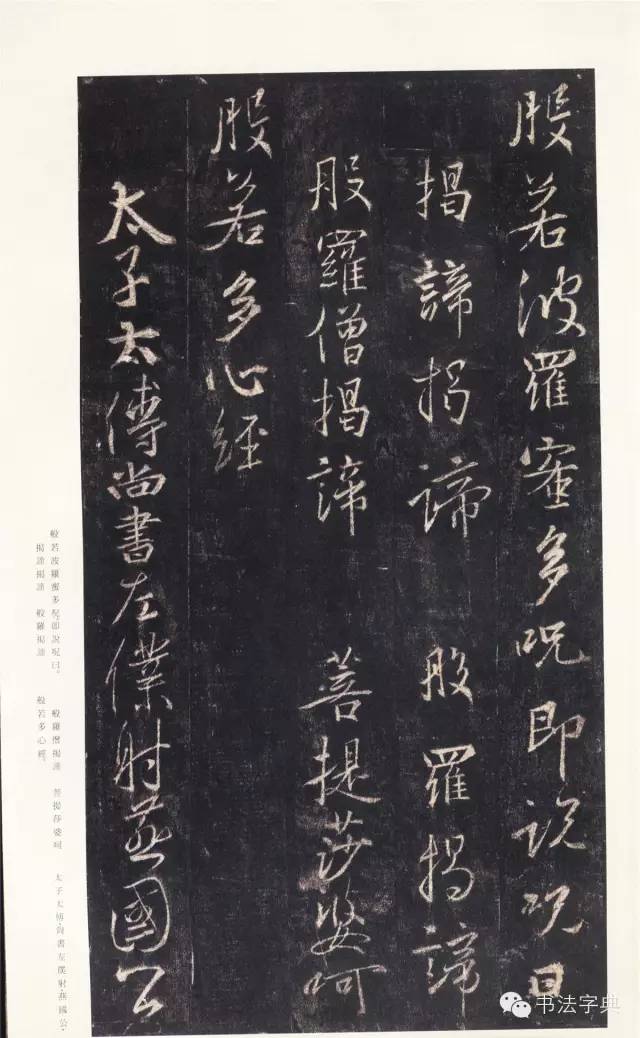 般若波羅蜜多呪即說呪曰
揭諦揭諦 般羅揭諦
般羅僧揭諦 菩提莎婆呵
般若多心經
太子太傅尚書左僕射燕國公
般若波羅蜜多呪。即說呪曰。
揭諦揭諦 般羅揭諦
般羅僧揭諦 菩提莎婆呵
般若多心經。
太子太傅·尚書左僕射·燕國公·
书法字典